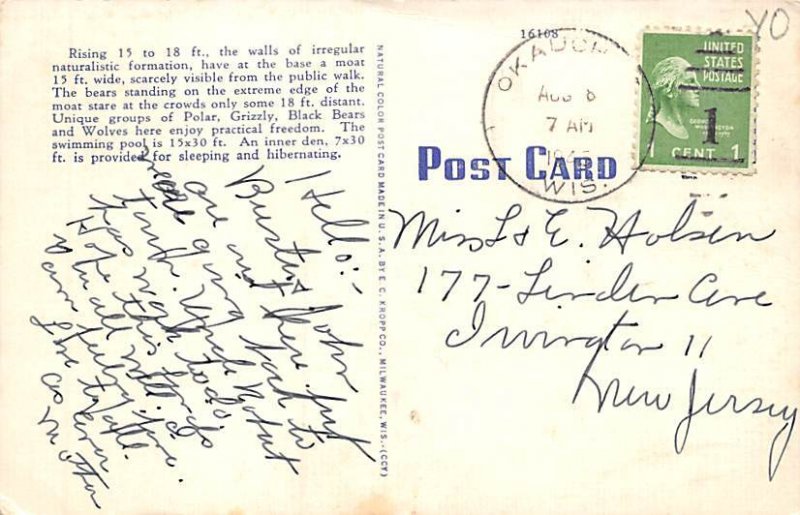 Rising 15 to 18 ft., the walls of irregular
naturalistic formation, have at the base a moat
15 ft. wide, scarcely visible from the public walk.
The bears standing on the extreme edge of the
moat stare at the crowds only some 18 ft. distant.
Unique groups of Polar, Grizzly, Black Bears
and Wolves here enjoy practical freedom. The
swimming pool is 15x30 ft. An inner den, 7x30
ft. is provided for sleeping and hibernating.
Hello:-
Buster & John
are out here just
now going back to
farm. Much
has work to do.
Hope this finds
you all well. I
am feeling fine.
Love to all.
as ever
Mother
NATURAL COLOR POST CARD MADE IN U.S.A. BY E. C. KROPP CO., MILWAUKEE, WIS. (CCY)
16108
YO
OKAUCH
AUG 8
7 AM
WIS.
UNITED
STATES
POSTAGE
1
1 CENT 1
POST CARD
Miss L & E. Holsen
177-Linden Ave
Irvington 11
New Jersey